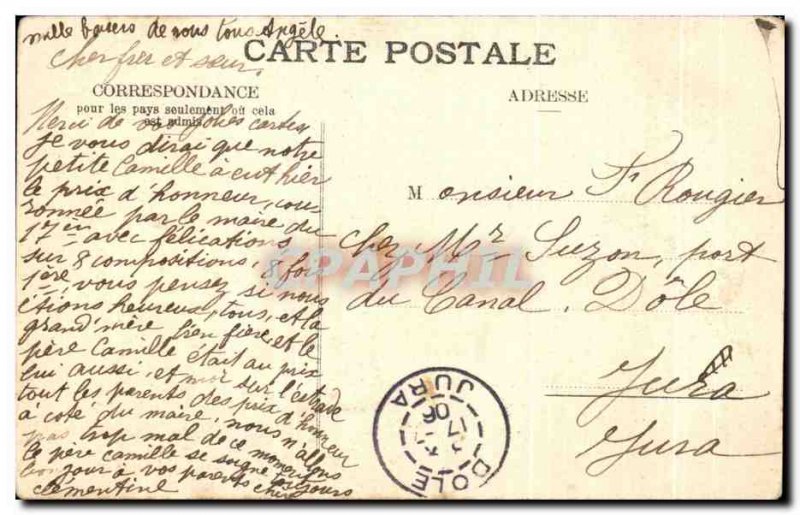 mille baisers de nous tous Angèle.
CARTE POSTALE
Cher frer et seur,
CORRESPONDANCE
pour les pays seulement où cela
est admis
ADRESSE
Merci de vos jolies cartes
Je vous dirai que notre
petite Camille à eut hier
le prix d'honneur, cou-
ronnée par le maire du
17em avec félications,
sur 8 compositions, 8 fois
1ère, vous pensez si nous
étions heureux, tous, et la
grand'mère bien fière, et le
père Camille était au prix
lui aussi, et moi sur l'estrade
tout les parents des prix d'honneur
à coté du maire, nous n'allons
pas trop mal de ce moment
le père camille se soigne toujours
bonjour à vos parents
Clémentine
Monsieur Fs Rougier
chez Mr Suzon, port
du Canal. Dôle
Jura
Jura
CPAPHIL
DOLE
17
06
JURA